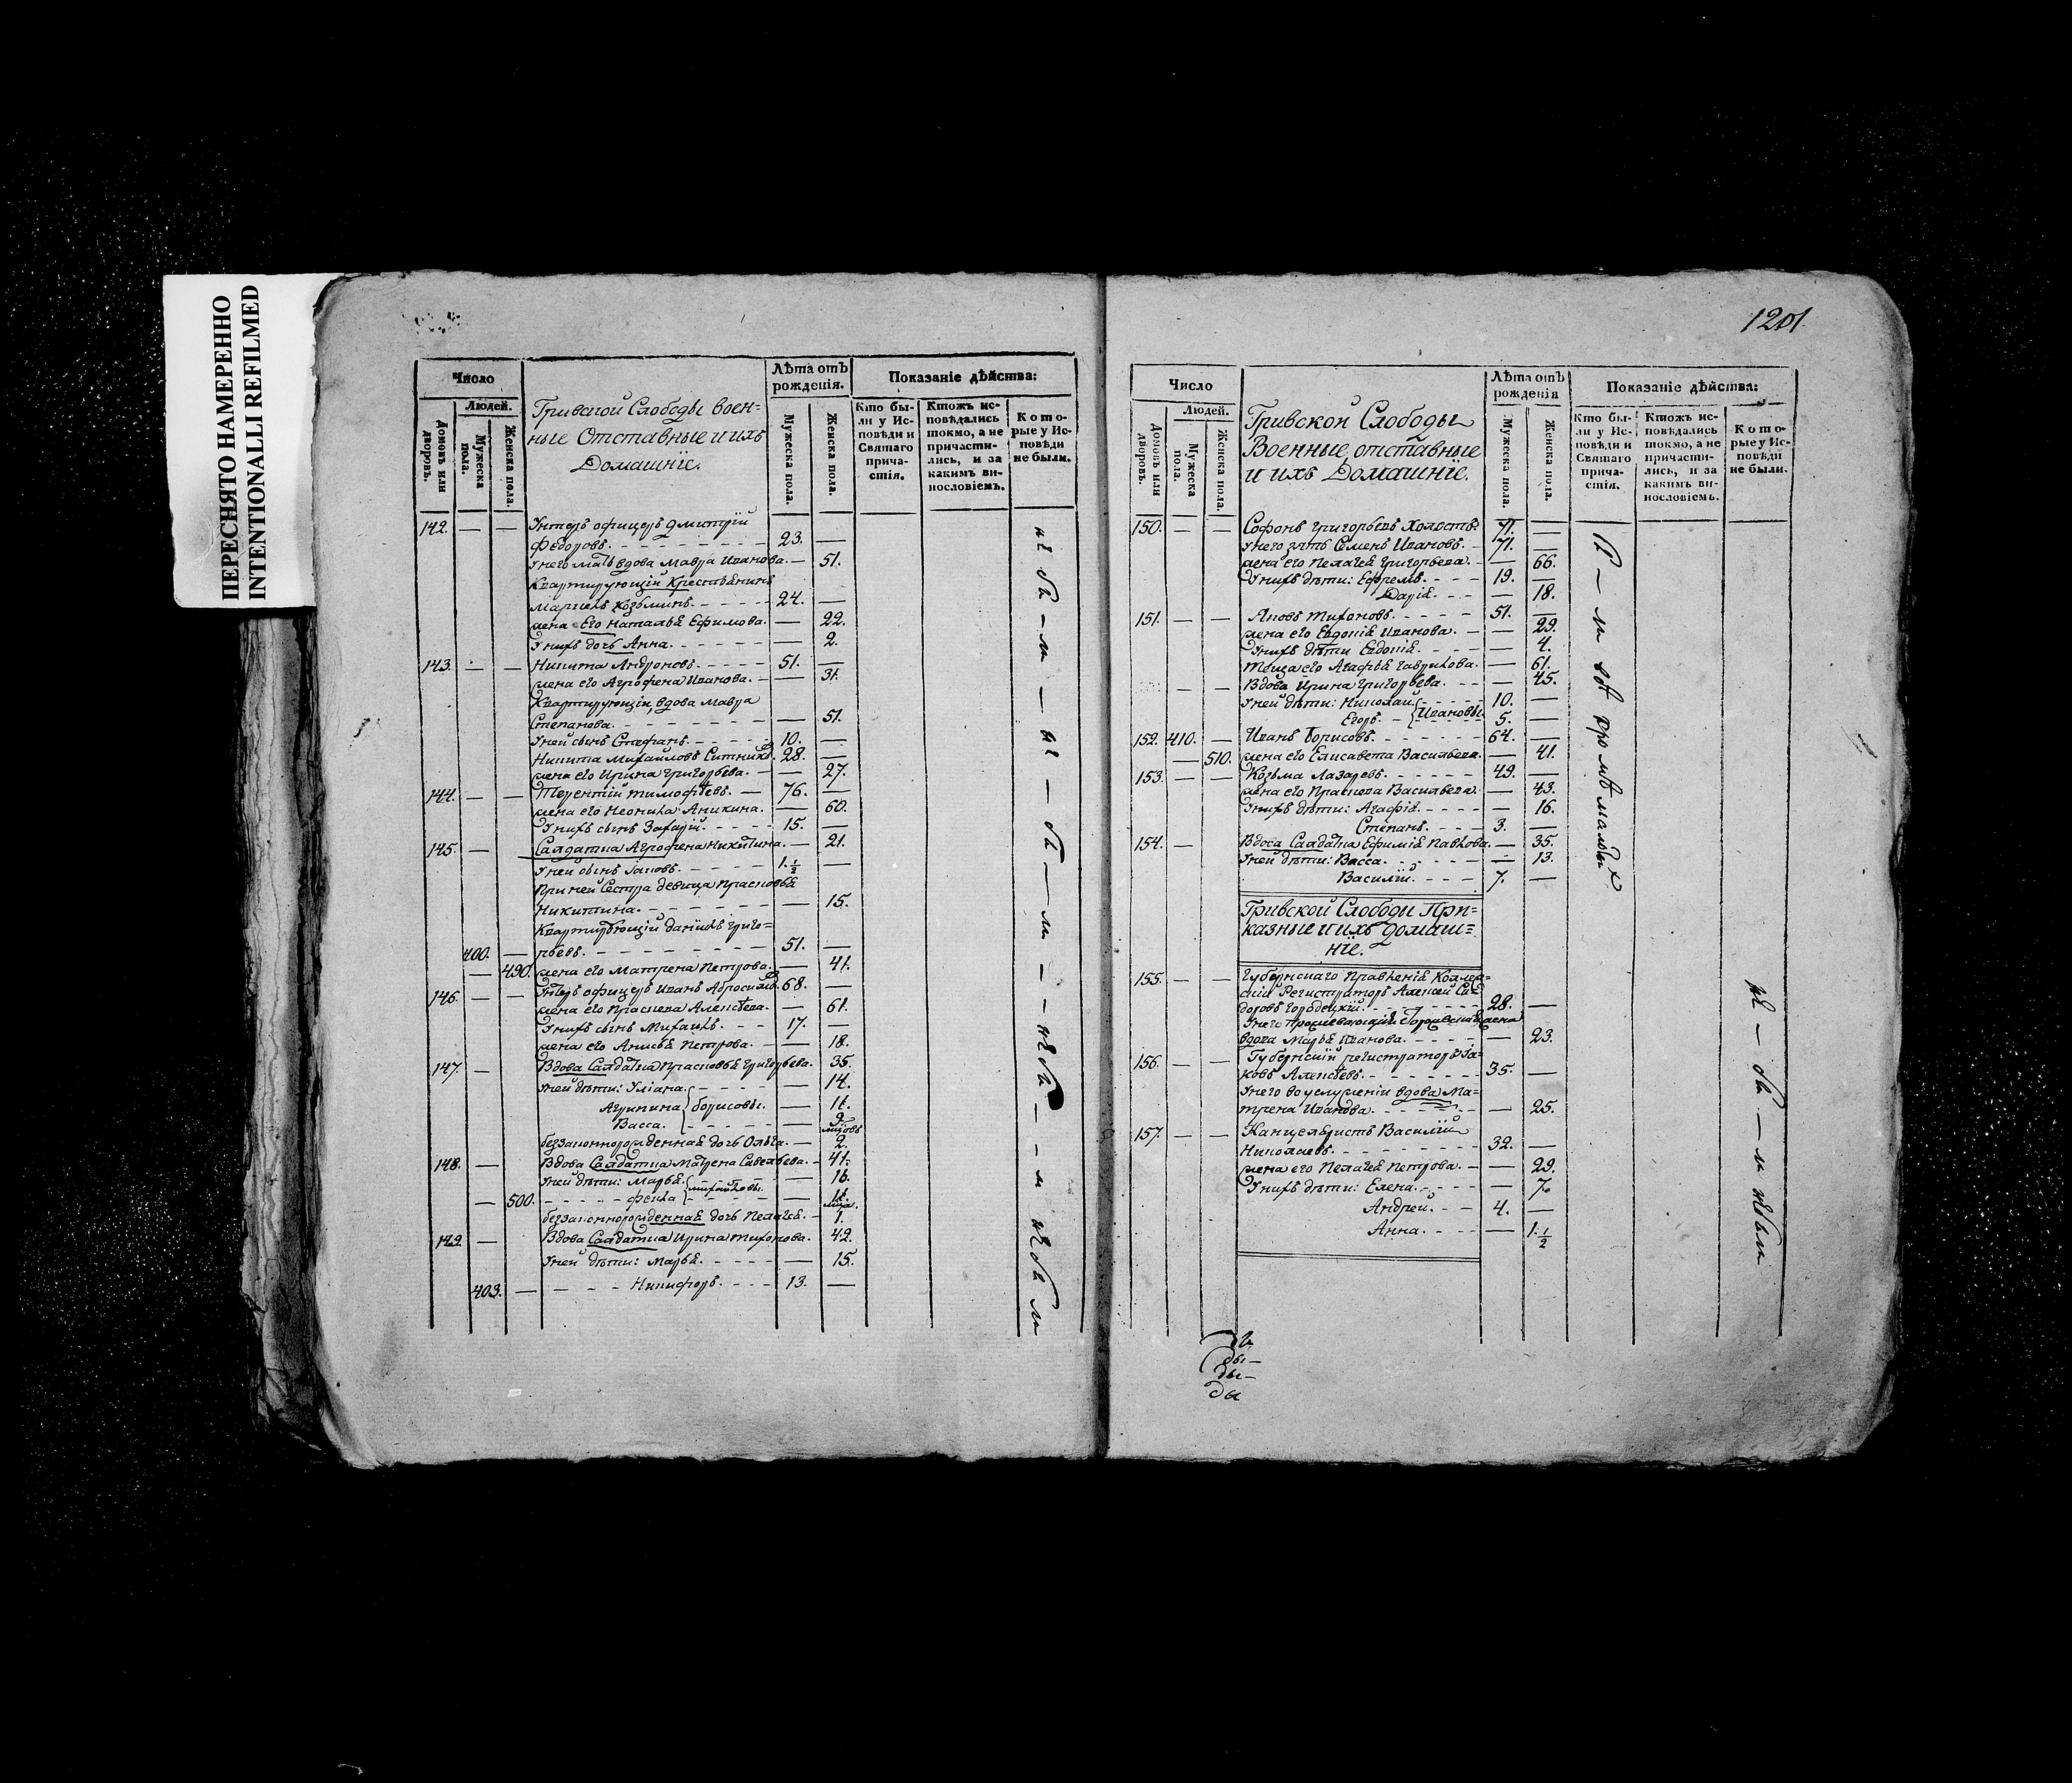 ПЕРЕСНЯТО НАМЕРЕННО
INTENTIONALLI REFILMED
1201
Число
Людей.
Домовъ или дворовъ.
Мужеска пола.
Женска пола.
Гривской Слободы воен=
ные Отставные и ихъ
Домашніе.
Лѣта отъ рожденія.
Мужеска пола.
Женска пола.
Показаніе дѣйства:
Кто бы-
ли у Ис-
повѣди и
Святаго
прича-
стія.
Ктожъ ис-
повѣдались
токмо, а не
причасти-
лись, и за
какимъ ви-
нословіемъ.
Кото-
рые у Ис-
повѣди
не были.
142. — — Унтеръ офицеръ Дмитрій
Федоровъ. 23. —
У него мать вдова Мавра Иванова. — 51.
Квартирующій Крестьянинъ
Козьминъ. 24. —
жена Его Наталья Ефимова. — 22.
У нихъ дочь Анна. — 2.
143. — — Никита Андроновъ. 51. —
жена его Агрофена Иванова. — 31.
Квартирующій, вдова Мавра
Степанова. — 51.
У ней сынъ Стефанъ. 10. —
Никита Михайловъ Ситниковъ. 28. —
жена его Ирина Григорьева. — 27.
144. — — Терентій Тимофѣевъ. 76. —
жена его Неонила Аникина. — 60.
У нихъ сынъ Захарій. 15. —
145. — Салдатка Агрофена Никитина. — 21.
У ней сынъ Іаковъ. 1 1/2 —
При ней Сестра девица Прасковья
Никитина. — 15.
Квартирующій Даніилъ Григо=
400. — рьевъ. 51. —
— 490. жена его Матрена Петрова. — 41.
146. — — Унтеръ офицеръ Иванъ Абросимовъ. 68. —
жена его Праскева Алексѣева. — 61.
У нихъ сынъ Михаилъ. 17. —
жена его Анисья Петрова. — 18.
147. — Вдова Салдатка Прасковья Григорьева. 35.
У ней дѣти: Уліана. — 14.
Агрипина Борисовы. — 11.
Васса. — 2
беззаконнорожденная дочь Ольга. — 2.
148. — Вдова Салдатка Матрена Савельева. — 41.
У ней дѣти: Марья Михайловы. — 16.
— 500. Фекла — 11.
беззаконнорожденная дочь Пелагея. — 1.
149. — Вдова Салдатка Ирина Тихонова. 42.
У ней дѣти: Марья. — 15.
403. — Никифоръ. 13. —
Число
Людей.
Домовъ или дворовъ.
Мужеска пола.
Женска пола.
Гривской Слободы
Военные, отставные
и ихъ Домашніе.
Лѣта отъ рожденія
Мужеска пола.
Женска пола.
Показаніе дѣйства:
Кто бы-
ли у Ис-
повѣди и
Святаго
прича-
стія.
Ктожъ ис-
повѣдались
токмо, а не
причасти-
лись, и за
какимъ ви-
нословіемъ.
Кото-
рые у Ис-
повѣди
не были.
150. — — Софонъ Григорьевъ Холостъ. 71. —
У него зять Семенъ Ивановъ. 71. —
жена его Пелагея Григорьева. — 66.
У нихъ дѣти: Ефремъ. 19. —
Дарія. — 18.
151. — — Тихоновъ. 51. —
жена его Евдокія Иванова. — 29.
У нихъ дѣти Евдокія. — 4.
Теща его Агафья Гаврилова. — 61.
— — Вдова Ирина Григорьева. — 45.
У ней дѣти: Николай Ивановы 10. —
Егоръ. 5. —
152. 410. — Иванъ Борисовъ. 64. —
— 510. жена его Елисавета Васильева. — 41.
153. — — Козьма Лазаревъ. 49. —
жена его Праскева Васильева. — 43.
У нихъ дѣти: Агафія. — 16.
Степанъ. 3. —
154. — Вдова Салдатка Ефимія Павлова. — 35.
У ней дѣти: Васса. — 13.
Василій. 7. —
Гривской Слободы При=
казные и ихъ домаш=
ніе.
155. — — Губернскаго Правленія Коллеж=
скій Регистраторъ Алексей Си=
доровъ Городецкій. 28. —
У него
вдова Марья Иванова. — 23.
156. — — Губернскій регистраторъ Іа=
ковъ Алексѣевъ. 35. —
У него во услуженіи вдова Ма=
трена Иванова. — 25.
157. — — Канцеляристъ Василій
Николаевъ. 32. —
жена его Пелагея Петрова. — 29.
У нихъ дѣти: Елена. — 7.
Андрей. 4. —
Анна. — 1 1/2